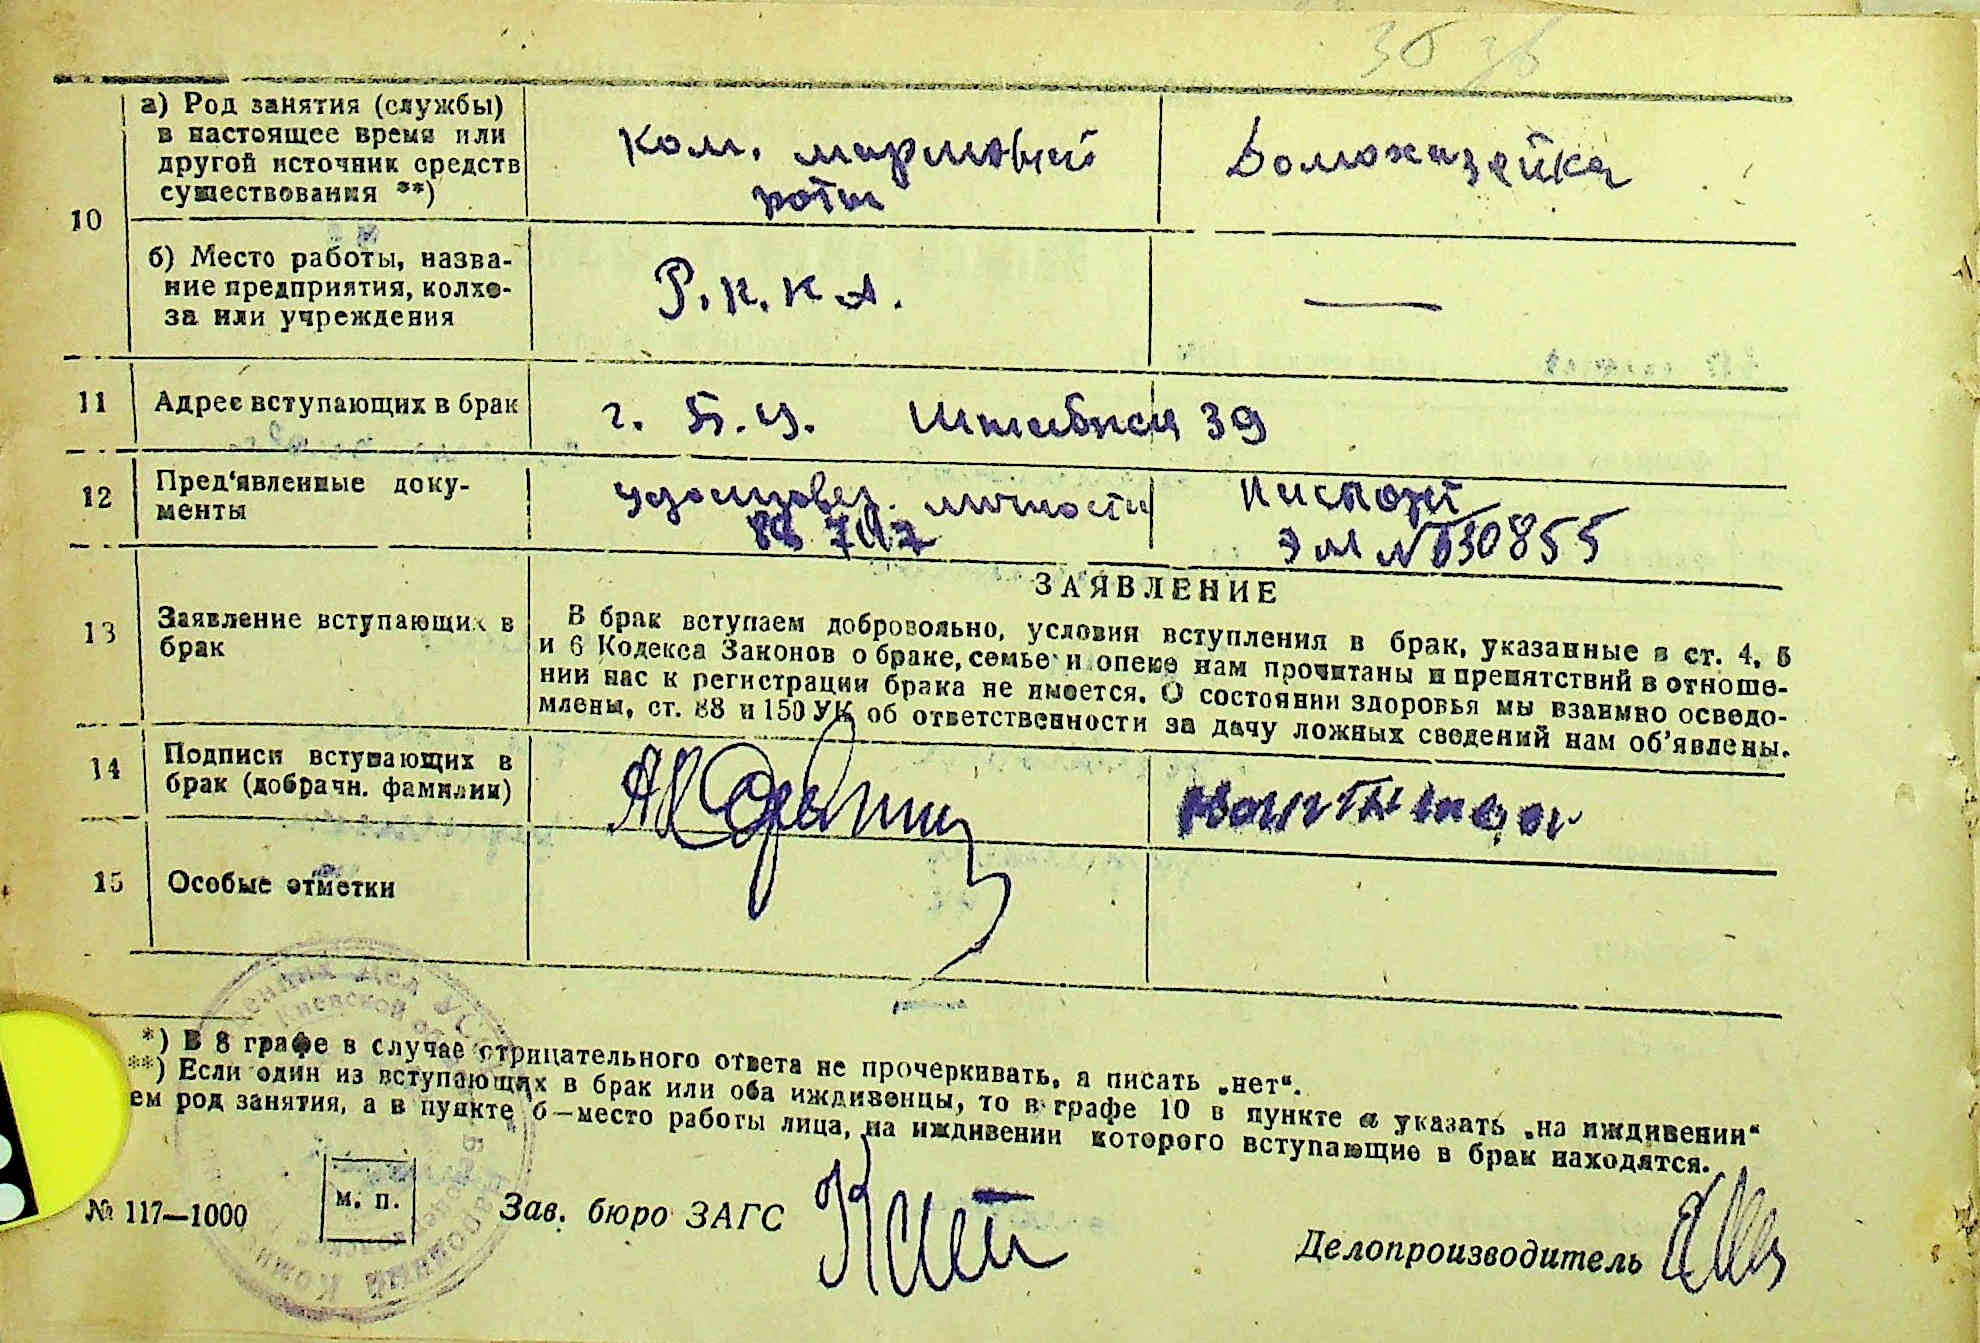 36
10
а) Род занятия (службы)
в настоящее время или
другой источник средств
существования **)
Ком. маршевой
роты
Домохазяйка
б) Место работы, назва-
ние предприятия, колхо-
за или учреждения
Р. К. К А.
—
11
Адрес вступающих в брак
г. Б. Ц. Штабная 39
12
Пред'явленные доку-
менты
удостовер. личности
Паспорт
№ 630855
13
Заявление вступающих в
брак
ЗАЯВЛЕНИЕ
В брак вступаем добровольно, условия вступления в брак, указанные в ст. 4, 5
и 6 Кодекса Законов о браке, семье и опеке нам прочитаны и препятствий в отноше-
нии нас к регистрации брака не имеется. О состоянии здоровья мы взаимно осведо-
млены, ст. 88 и 150 УК об ответственности за дачу ложных сведений нам об'явлены.
14
Подписи вступающих в
брак (добрачн. фамилии)
15
Особые отметки
*) В 8 графе в случае отрицательного ответа не прочеркивать, а писать „нет“.
**) Если один из вступающих в брак или оба иждивенцы, то в графе 10 в пункте а указать „на иждивении“
ем род занятия, а в пункте б—место работы лица, на иждивении которого вступающие в брак находятся.
№ 117—1000
м. п.
Зав. бюро ЗАГС
Делопроизводитель
Киевской
Народный Комис